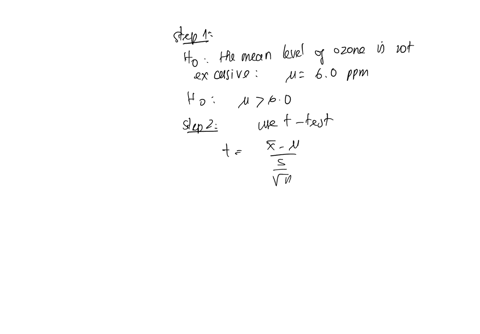 Step 1:
H₀: the mean level of ozone is not
excessive: μ = 6.0 ppm
H₀: μ > 6.0
Step 2: use t-test
t = (x̄ - μ) / (s / √n)